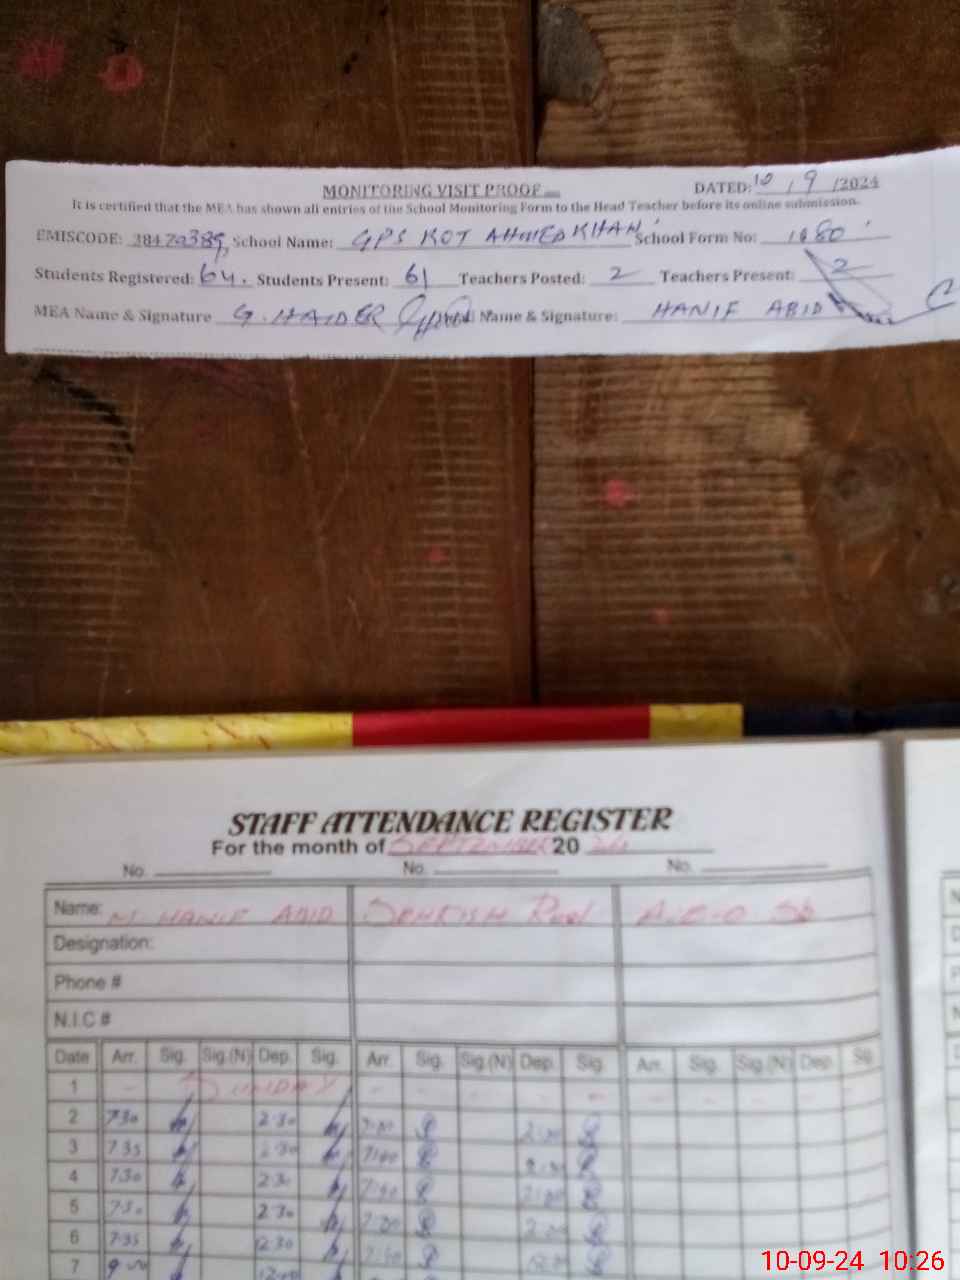 MONITORING VISIT PROOF
DATED: 10 / 9 /2024
It is certified that the MEA has shown all entries of the School Monitoring Form to the Head Teacher before its online submission.
EMISCODE: School Name: GPS KOT AHMED KHAN School Form No: 1680
Students Registered: 64. Students Present: 61 Teachers Posted: 2 Teachers Present: 2
MEA Name & Signature G. HAIDER Name & Signature: HANIF ABID
STAFF ATTENDANCE REGISTER
For the month of SEPTEMBER 20 24
No. No. No.
Name: M. HANIF ABID
Designation:
Phone #
N.I.C #
Date Arr. Sig. Sig.(N) Dep. Sig. Arr. Sig. Sig.(N) Dep. Sig. Arr. Sig. Sig.(N) Dep. Sig.
1 SUNDAY
2 7:30 2:30
3 7:35 2:30
4 7:30 2:30
5 7:30 2:30
6 7:35 12:30
7 12:00
10-09-24 10:26